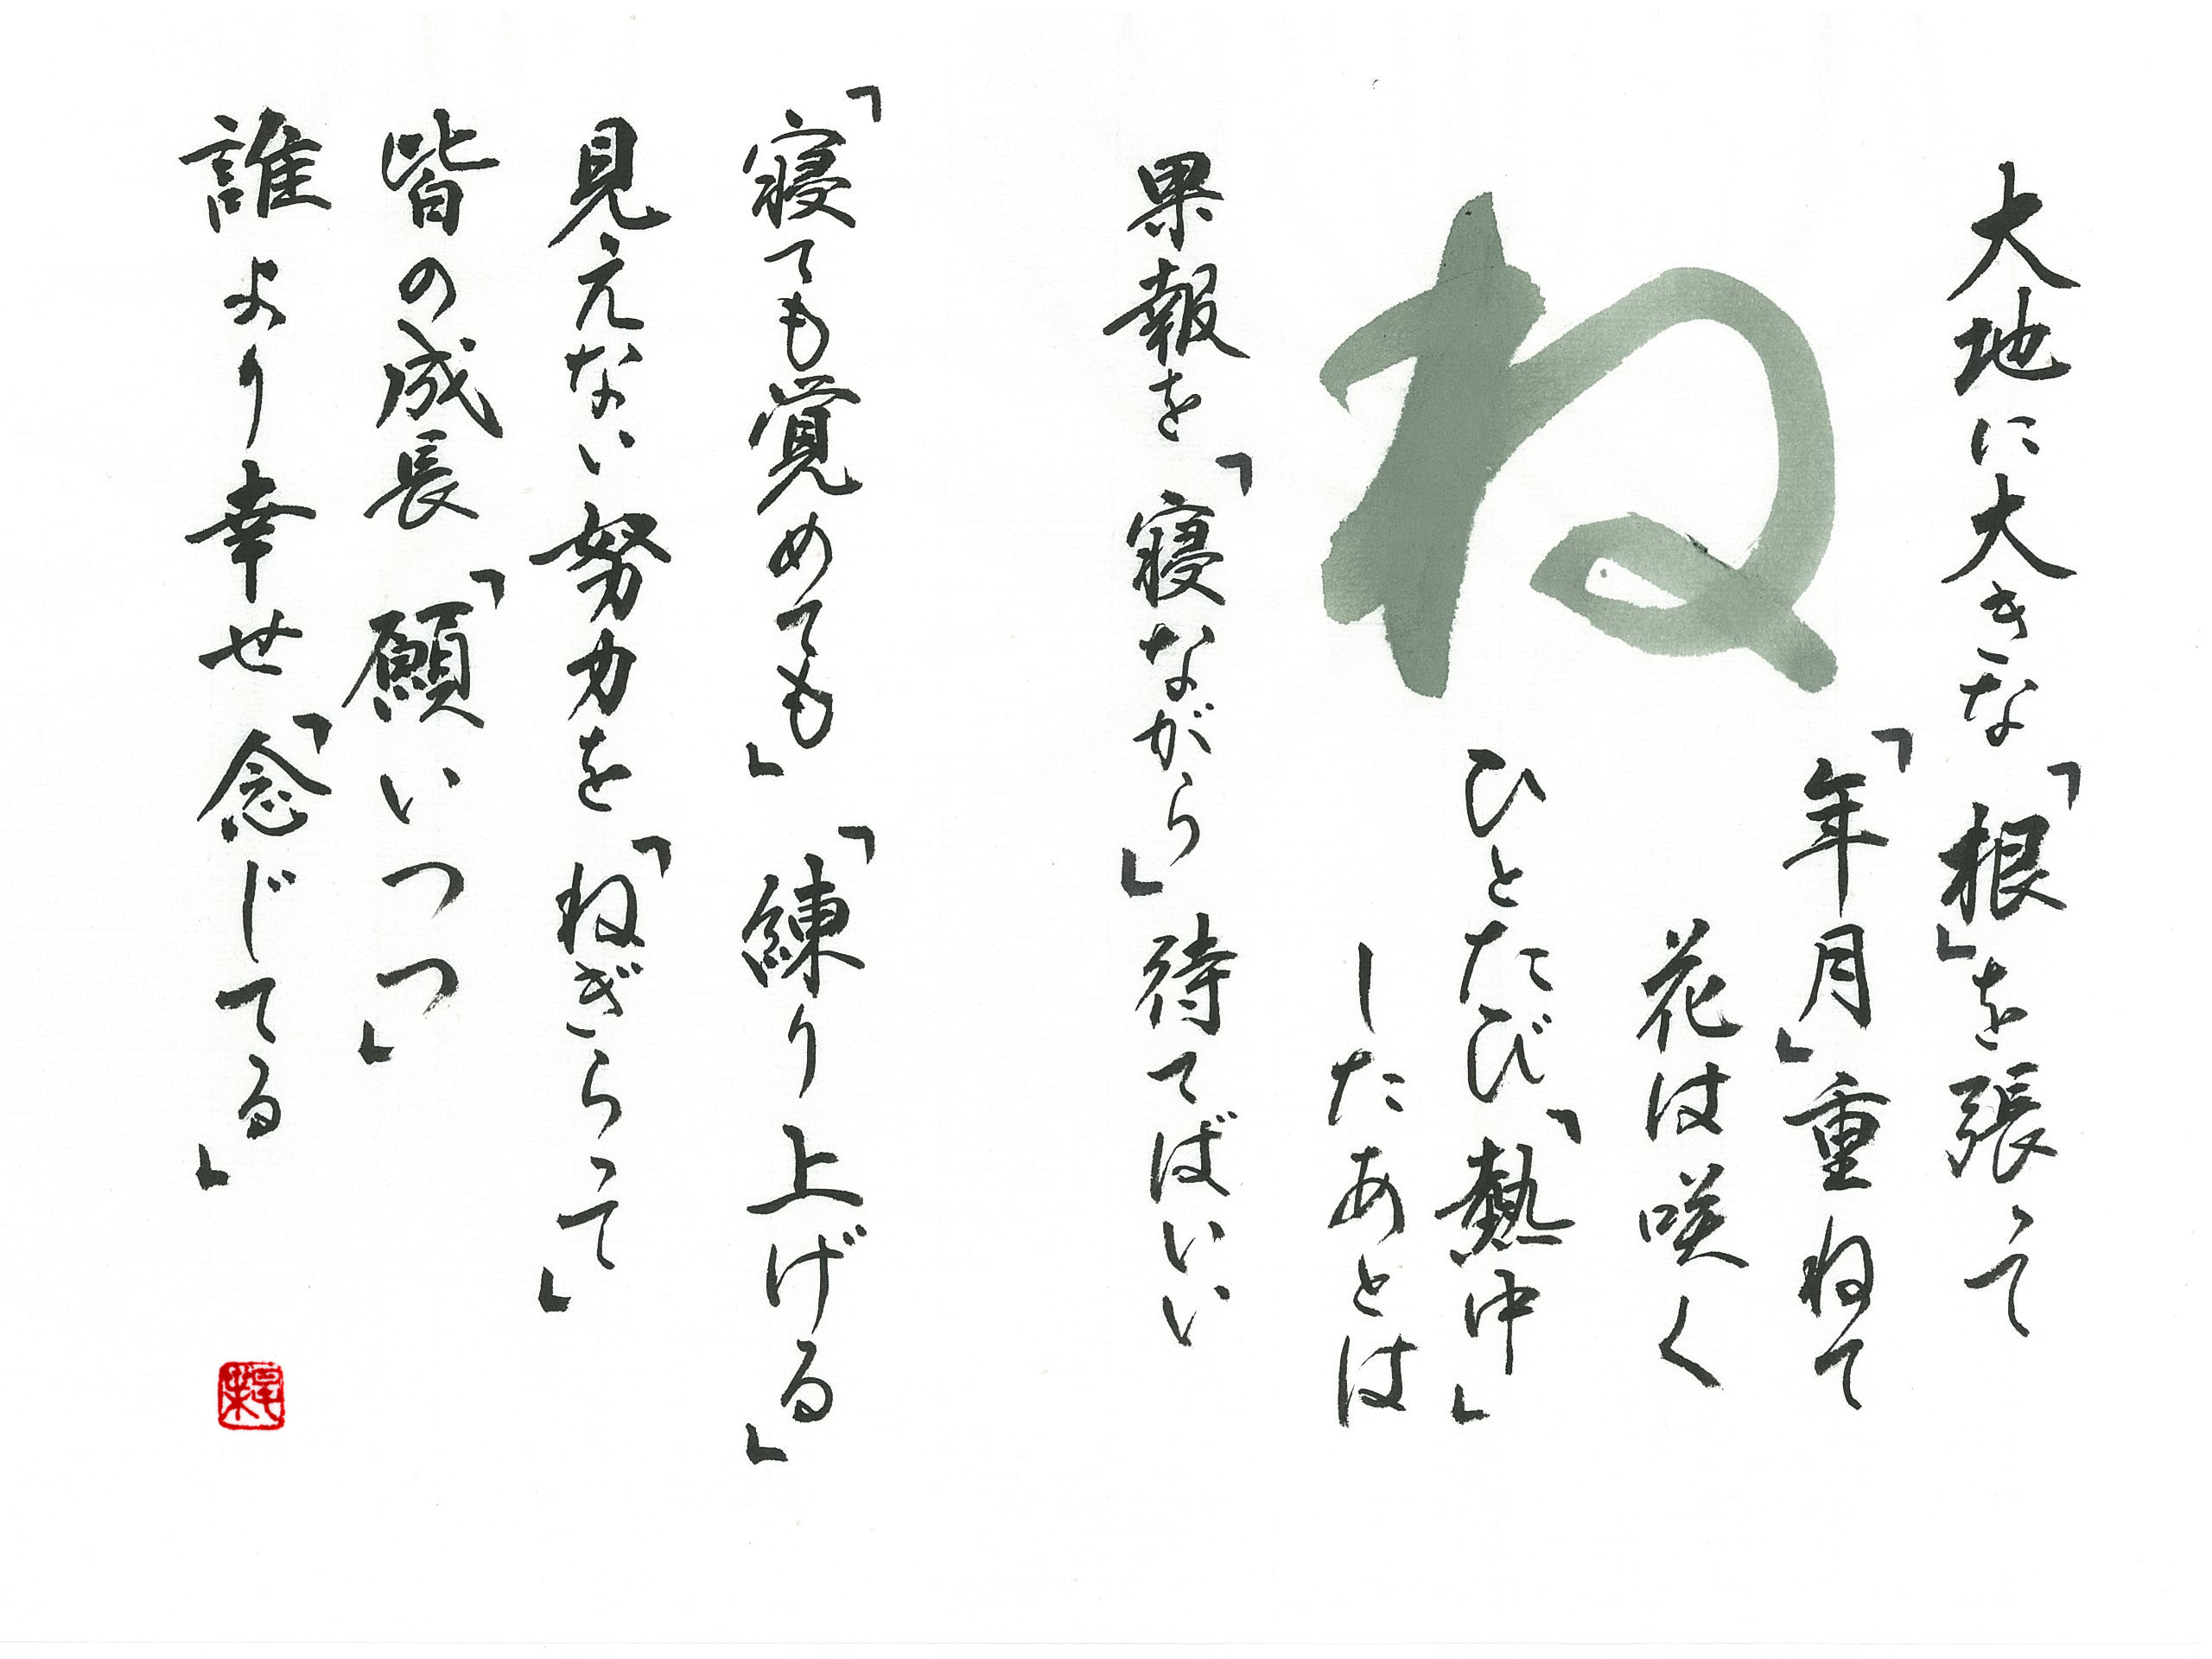 大地に大きな「根」を張って
ね
「年月」重ねて
花は咲く
ひとたび「熱中」
したあとは
果報を「寝ながら」待てばいい
「寝ても覚めても」「練り上げる」
見えない努力を「ねぎらって」
皆の成長「願いつつ」
誰より幸せ「念じてる」